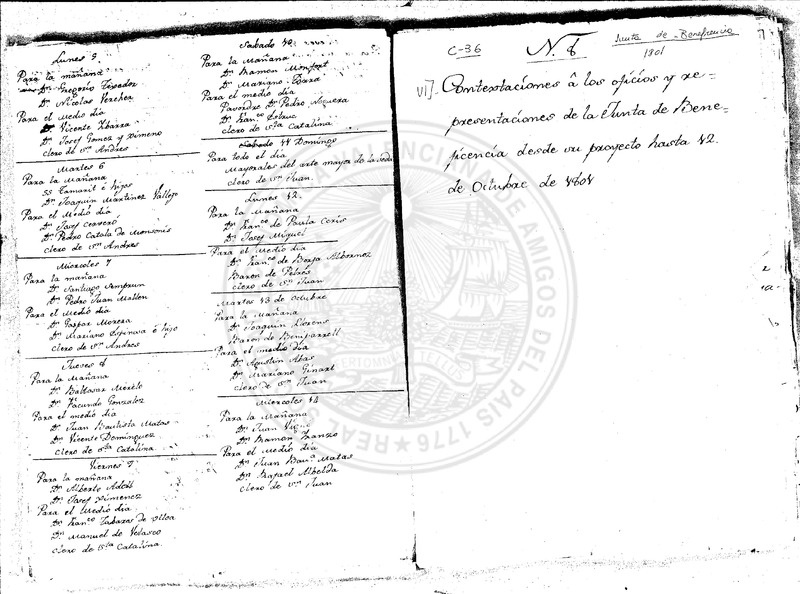 Lunes 5
Para la mañana
Dn. Gregorio Texedor
Dn. Nicolas Verchea
Para el Medio dia
Dn. Vicente Ybarra
Dn. Josef Gomez y Ximeno
clero de Sn. Andres
Martes 6
Para la Mañana
SS Tamarit é hijos
Dn. Joaquin Martinez Vallejo
Para el Medio dia
Dn. Josef Cerveró
Dn. Pedro Catala de Monsonis
clero de Sn. Andres
Miercoles 7
Para la mañana
Dn. Santiago Semprun
Dn. Pedro Juan Mallen
Para el Medio dia
Dn. Gaspar Morera
Dn. Mariano Espinosa é hijo
clero de Sn. Andres
Jueves 8
Para la Mañana
Dn. Baltasar Merelo
Dn. Facundo Gonzalez
Para el medio dia
Dn. Juan Bautista Matas
Dn. Vicente Dominguez
clero de Sta. Catalina.
Viernes 9
Para la mañana
Dn. Alberto
Dn. Josef Ximenez
Para el Medio dia
Dn. Franco. Tabares de Ulloa
Dn. Manuel de Velasco
clero de Sta. Catalina.
Sabado 10
Para la Mañana
Dn. Ramon Monfort
Dn. Mariano
Para el medio dia
Pavordre Dn. Pedro Noguera
Dn. Franco. Estruc
clero de Sta. Catalina
Sabado 11 Domingo
Para todo el dia
Mayorales del arte mayor de la seda
clero de Sn. Juan.
Lunes 12
Para la Mañana
Dn. Franco. de Paula Ceris
Dn. Josef Miquel
Para el Medio dia
Dn. Franco. de Borja Albornoz
Baron de Petrés
clero de Sn. Juan
Martes 13 de Octubre
Para la Mañana
Dn. Joaquin Llorens
Baron de Beniparrell
Para el medio dia
Dn. Agustin Abas
Dn. Mariano Ginart
clero de Sn. Juan
Miercoles 14
Para la Mañana
Dn. Juan
Dn. Ramon
Para el Medio dia
Dn. Juan Bauta. Matas
Dn. Rafael Albelda
clero de Sn. Juan
C-36
N. 8
Junta de Beneficencia
1801
VI7.
Contextaciones â los oficios y re-
presentaciones de la Junta de Bene-
ficencia desde su proyecto hasta 12.
de Octubre de 1801